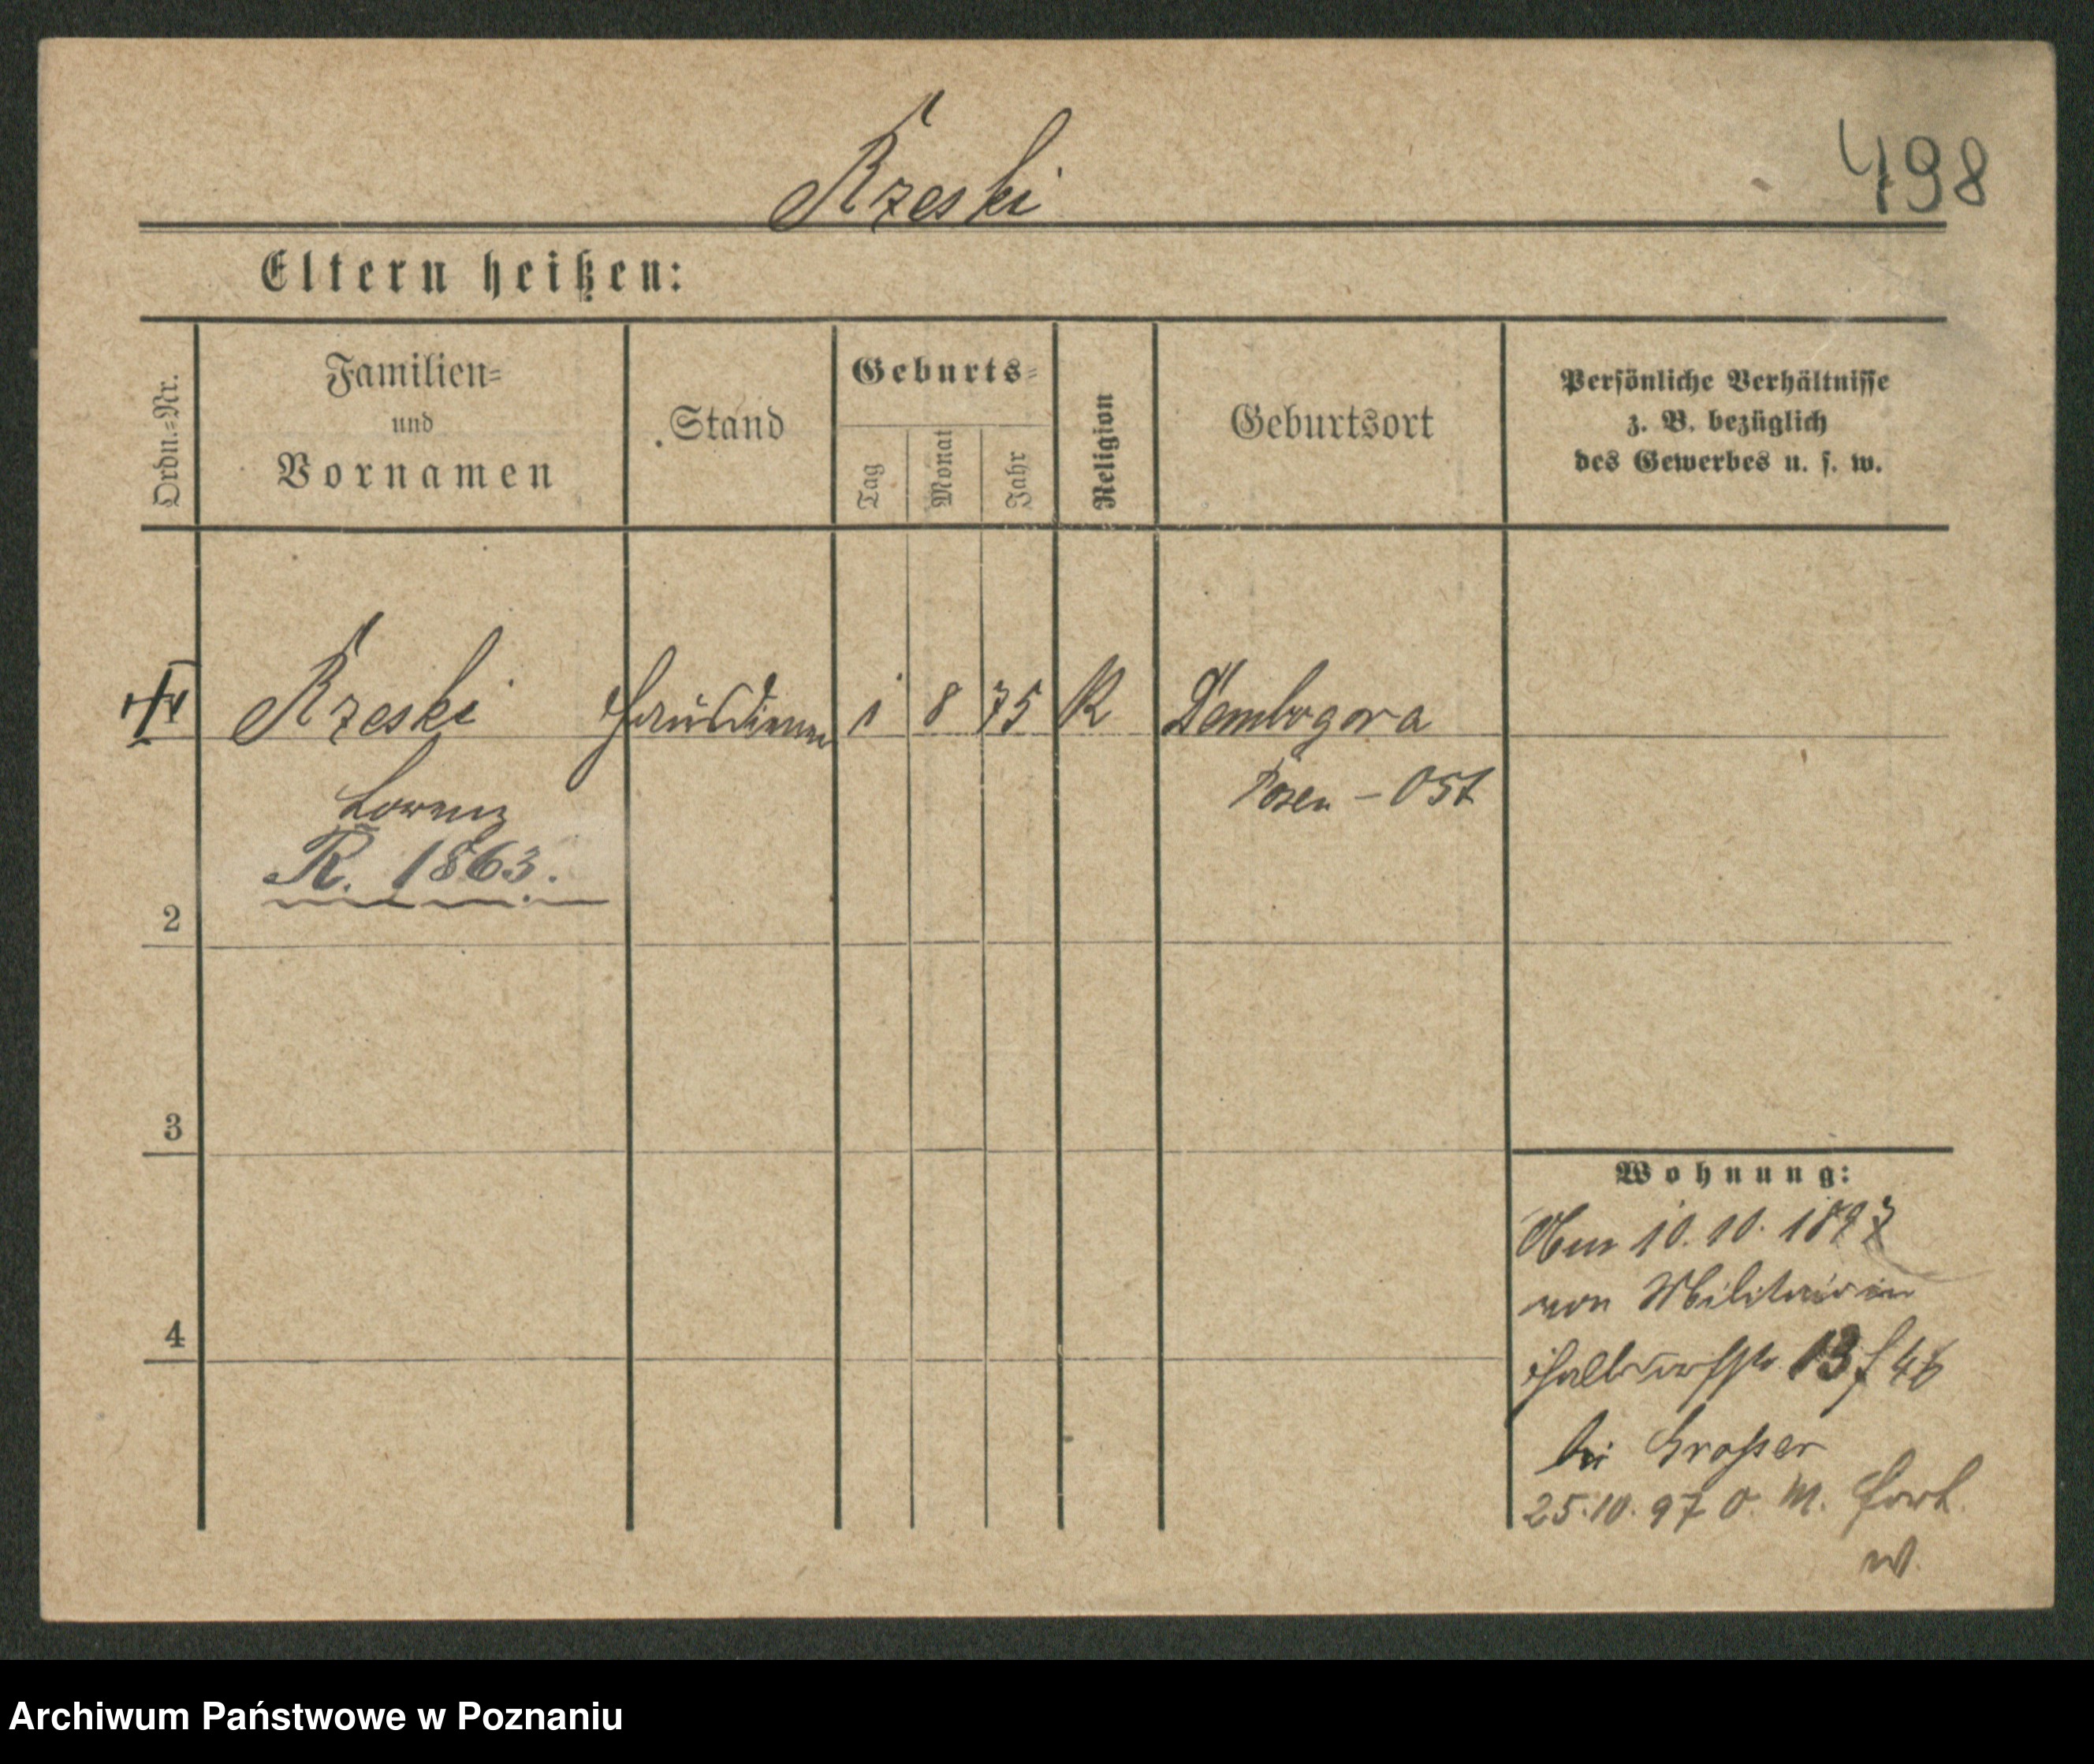 Rzeski
498
Eltern heißen:
Ordn.=Nr.
Familien=
und
Vornamen
Stand
Geburts=
Tag
Monat
Jahr
Religion
Geburtsort
Persönliche Verhältnisse
z. B. bezüglich
des Gewerbes u. s. w.
Rzeski Hausdiener 1 8 75 K Dembogora
Lorenz Posen - Ost
R. 1863.
2
3
4
Wohnung:
Am 10. 10. 1897
von Militair in
Halbdorfstr. 13
bei Grosser
25. 10. 97 O. M. fort
w.
Archiwum Państwowe w Poznaniu